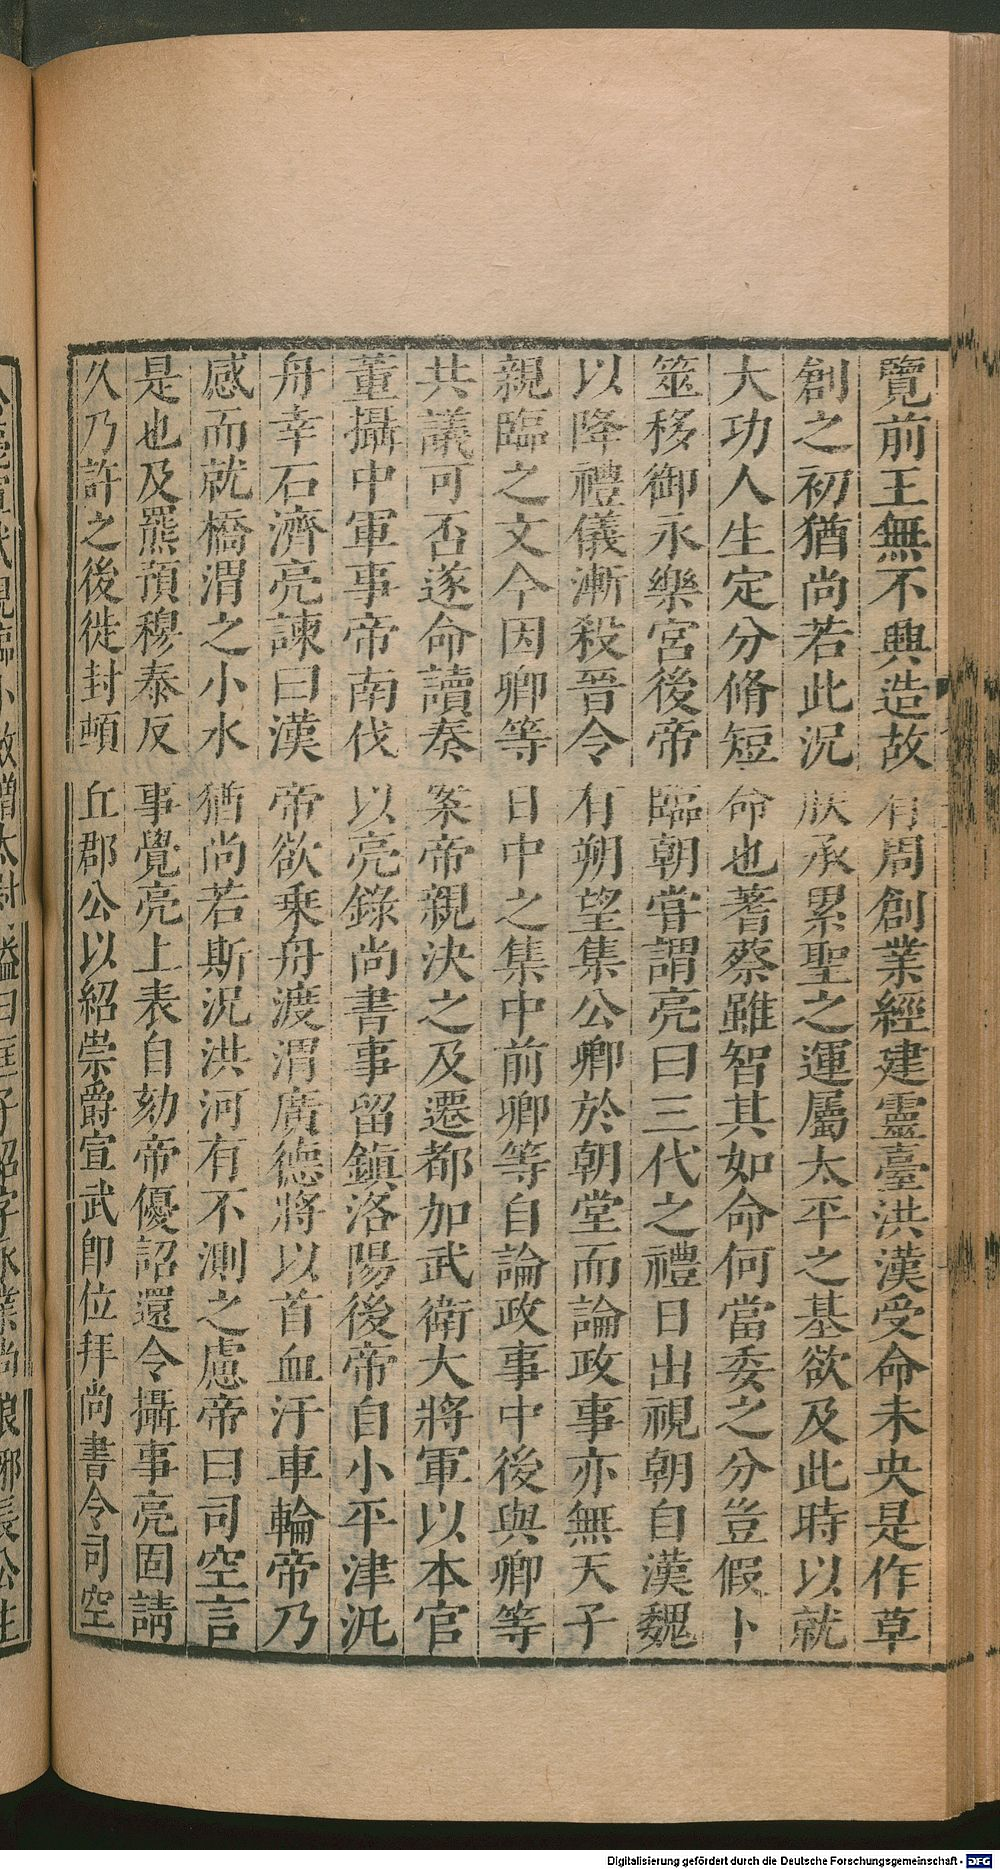 覽前王無不興造故有周創業經建靈臺洪漢受命未央是作草
創之初猶尚若此況朕承累聖之運屬太平之基欲及此時以就
大功人生定分脩短命也蓍蔡雖智其如命何當委之分豈假卜
筮移御永樂宮後帝臨朝甞謂亮曰三代之禮日出視朝自漢魏
以降禮儀漸殺晉令有朔望集公卿於朝堂而論政事亦無天子
親臨之文今因卿等日中之集中前卿等自論政事中後與卿等
共議可否遂命讀奏案帝親決之及遷都加武衛大將軍以本官
董攝中軍事帝南伐以亮錄尚書事留鎮洛陽後帝自小平津汎
舟幸石濟亮諫曰漢帝欲乗舟渡渭廣德將以首血汙車輪帝乃
感而就橋渭之小水猶尚若斯況洪河有不測之慮帝曰司空言
是也及羆預穆泰反事覺亮上表自劾帝優詔還令攝事亮固請
久乃許之後徙封頓丘郡公以紹崇爵宣武即位拜尚書令司空
Digitalisierung gefördert durch die Deutsche Forschungsgemeinschaft - DFG